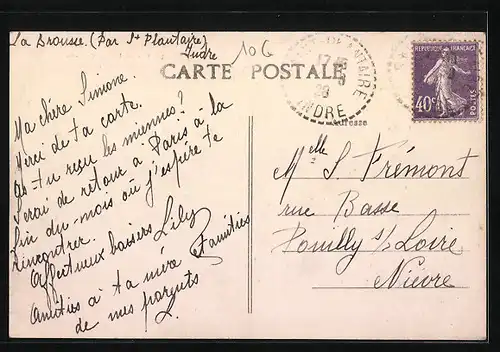 La Brousse. (Par St Plantaire)
Indre
10G
CARTE POSTALE
PLANTAIRE
INDRE
REPUBLIQUE FRANÇAISE
40c
POSTES
Adresse
Ma chère Simone.
Merci de ta carte.
as-tu reçu les miennes?
Serai de retour à Paris à la
fin du mois où j'espère te
rencontrer.
Affectueux baisers Lily
Amitiés à ta mère
de mes parents
L.
Melle S. Frémont
rue Basse
Pouilly s/ Loire
Nièvre